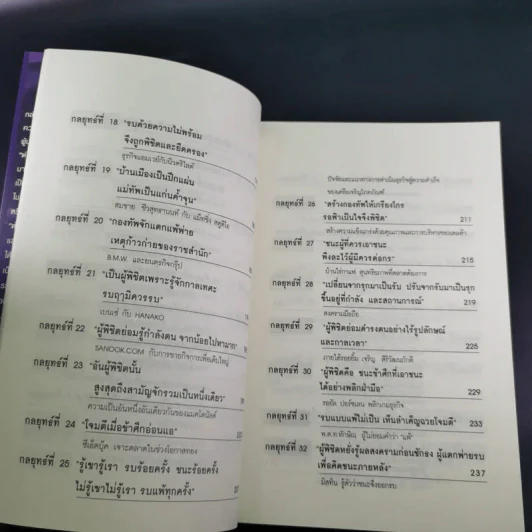 กลยุทธ์ที่ 18 "รบด้วยความไม่พร้อม
จึงถูกพิชิตและยึดครอง"
กลยุทธ์ที่ 19 "บ้านเมืองเป็นปึกแผ่น
แม่ทัพเป็นแก่นค้ำจุน"
กลยุทธ์ที่ 20 "กองทัพจักแตกแพ้พ่าย
เหตุก้าวก่ายของราชสำนัก"
B.M.W. และยนตรกิจกรุ๊ป
กลยุทธ์ที่ 21 "เป็นผู้พิชิตเพราะรู้จักกาลเทศะ
รบฤามิควรรบ"
เบนเซ่ กับ HANAKO
กลยุทธ์ที่ 22 "ผู้พิชิตย่อมรู้กำลังตน จากน้อยไปหามาก"
SANOOK.COM กับการขายกิจการเพื่อเติบใหญ่
กลยุทธ์ที่ 23 "อันผู้พิชิตนั้น
สูงสุดถึงสามัญจักรวมเป็นหนึ่งเดียว"
ความเป็นอันหนึ่งอันเดียวกันของแมคโดนัลด์
กลยุทธ์ที่ 24 "โจมตีเมื่อข้าศึกอ่อนแอ"
ซีเอ็ดบุ๊ค เจาะตลาดในช่วงโอกาสทอง
กลยุทธ์ที่ 25 "รู้เขารู้เรา รบร้อยครั้ง ชนะร้อยครั้ง
ไม่รู้เขาไม่รู้เรา รบแพ้ทุกครั้ง"
กลยุทธ์ที่ 26 "สร้างกองทัพให้เกรียงไกร
รอฟ้าเป็นใจจึงพิชิต" 211
กลยุทธ์ที่ 27 "ชนะผู้ที่ควรเอาชนะ
พึงละไว้ผู้มีควรต่อกร" 215
กลยุทธ์ที่ 28 "เปลี่ยนจากรุกมาเป็นรับ ปรับจากรับมาเป็นรุก
ขึ้นอยู่ที่กำลัง และสถานการณ์" 219
สงครามมือถือ
กลยุทธ์ที่ 29 "ผู้พิชิตย่อมดำรงตนอย่างไร้รูปลักษณ์
และกาลเวลา" 225
กลยุทธ์ที่ 30 "ผู้พิชิตคือ ชนะข้าศึกที่เอาชนะ
ได้อย่างพลิกฝ่ามือ" 229
กลยุทธ์ที่ 31 "รบแบบแพ้ไม่เป็น เห็นสำเค็ญฉวยโจมตี" 233
พ.ต.ท.ทักษิณ ผู้ไม่ยอมคำว่า "แพ้"
กลยุทธ์ที่ 32 "ผู้พิชิตหยั่งรู้ผลสงครามก่อนชักธง ผู้แตกพ่ายรบ
เพื่อคิดชนะภายหลัง" 237
มิสทิน รู้ตัวว่าชนะจึงออกรบ